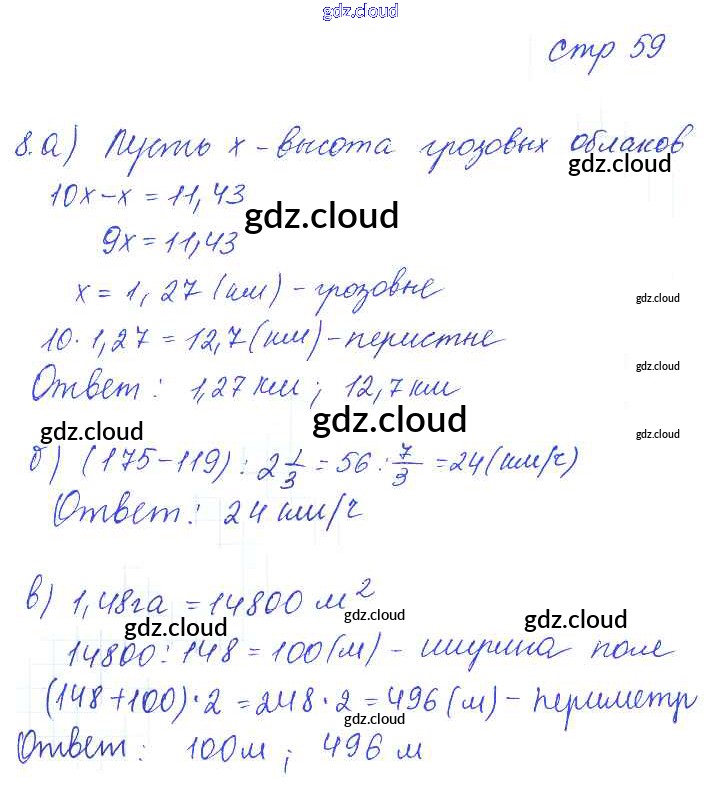 gdz.cloud
gdz.cloud
стр 59
8.а) Пусть x - высота грозовых облаков
gdz.cloud
10x-x = 11,43
gdz.cloud
9x = 11,43
x = 1,27 (км) - грозовые
gdz.cloud
10 · 1,27 = 12,7 (км) - перистые
gdz.cloud
Ответ: 1,27 км ; 12,7 км
gdz.cloud
gdz.cloud
gdz.cloud
б) (175-119) : 2 1/3 = 56 : 7/3 = 24 (км/ч)
Ответ: 24 км/ч
в) 1,48га = 14800 м²
gdz.cloud
gdz.cloud
gdz.cloud
14800 : 148 = 100 (м) - ширина поле
(148+100) · 2 = 248 · 2 = 496 (м) - периметр
gdz.cloud
Ответ: 100м ; 496 м